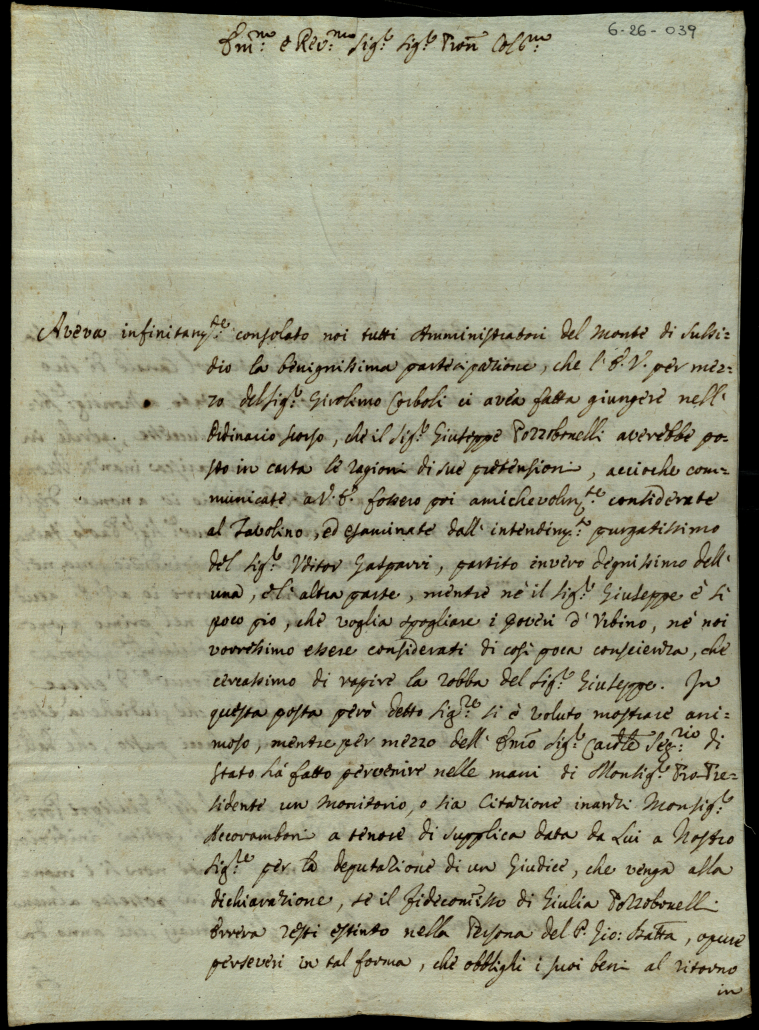 6-26-039
Em.mo e Rev.mo Sig.r Sig.r Pron Col.mo
Aveva infinitam.te consolato noi tutti Amministratori del Monte di Sussi=
dio la benignissima partecipazione, che l'E.V. per mez=
zo del Sig.r Girolimo Corboli ci avea fatta giungere nell'
Ordinario scorso, che il Sig.r Giuseppe Pozzobonelli averebbe po=
sto in carta le ragioni di sue pretensioni, acciochè com=
municate a V.E. fossero poi amichevolm.te considerate
al Tavolino, ed esaminate dall'intendim.to purgatissimo
del Sig.r Uditor Gasparri, partito invero degnissimo dell'
una, e l'altra parte, mentre nè il Sig.r Giuseppe è sì
poco pio, che voglia spogliare i poveri d'Urbino, nè noi
vorressimo essere considerati di così poca conscienza, che
cercassimo di rapire la robba del Sig.r Giuseppe. In
questa posta però detto Sig.re si è voluto mostrare ani=
moso, mentre per mezzo dell'Emo Sig.r Cardle Seg.rio di
Stato há fatto pervenire nelle mani di Monsig.r Pro-Pre=
sidente un Monitorio, o sia Citazione inanzi Monsig.r
Accoramboni a tenore di supplica data da Lui a Nostro
Sig.re per la deputazione di un Giudice, che venga alla
dichiarazione, se il Fideicomisso di Giulia Pozzobonelli
resti estinto nella Persona del P. Gio: Batta, opure
perseveri in tal forma, che obblighi i suoi beni al ritorno
in